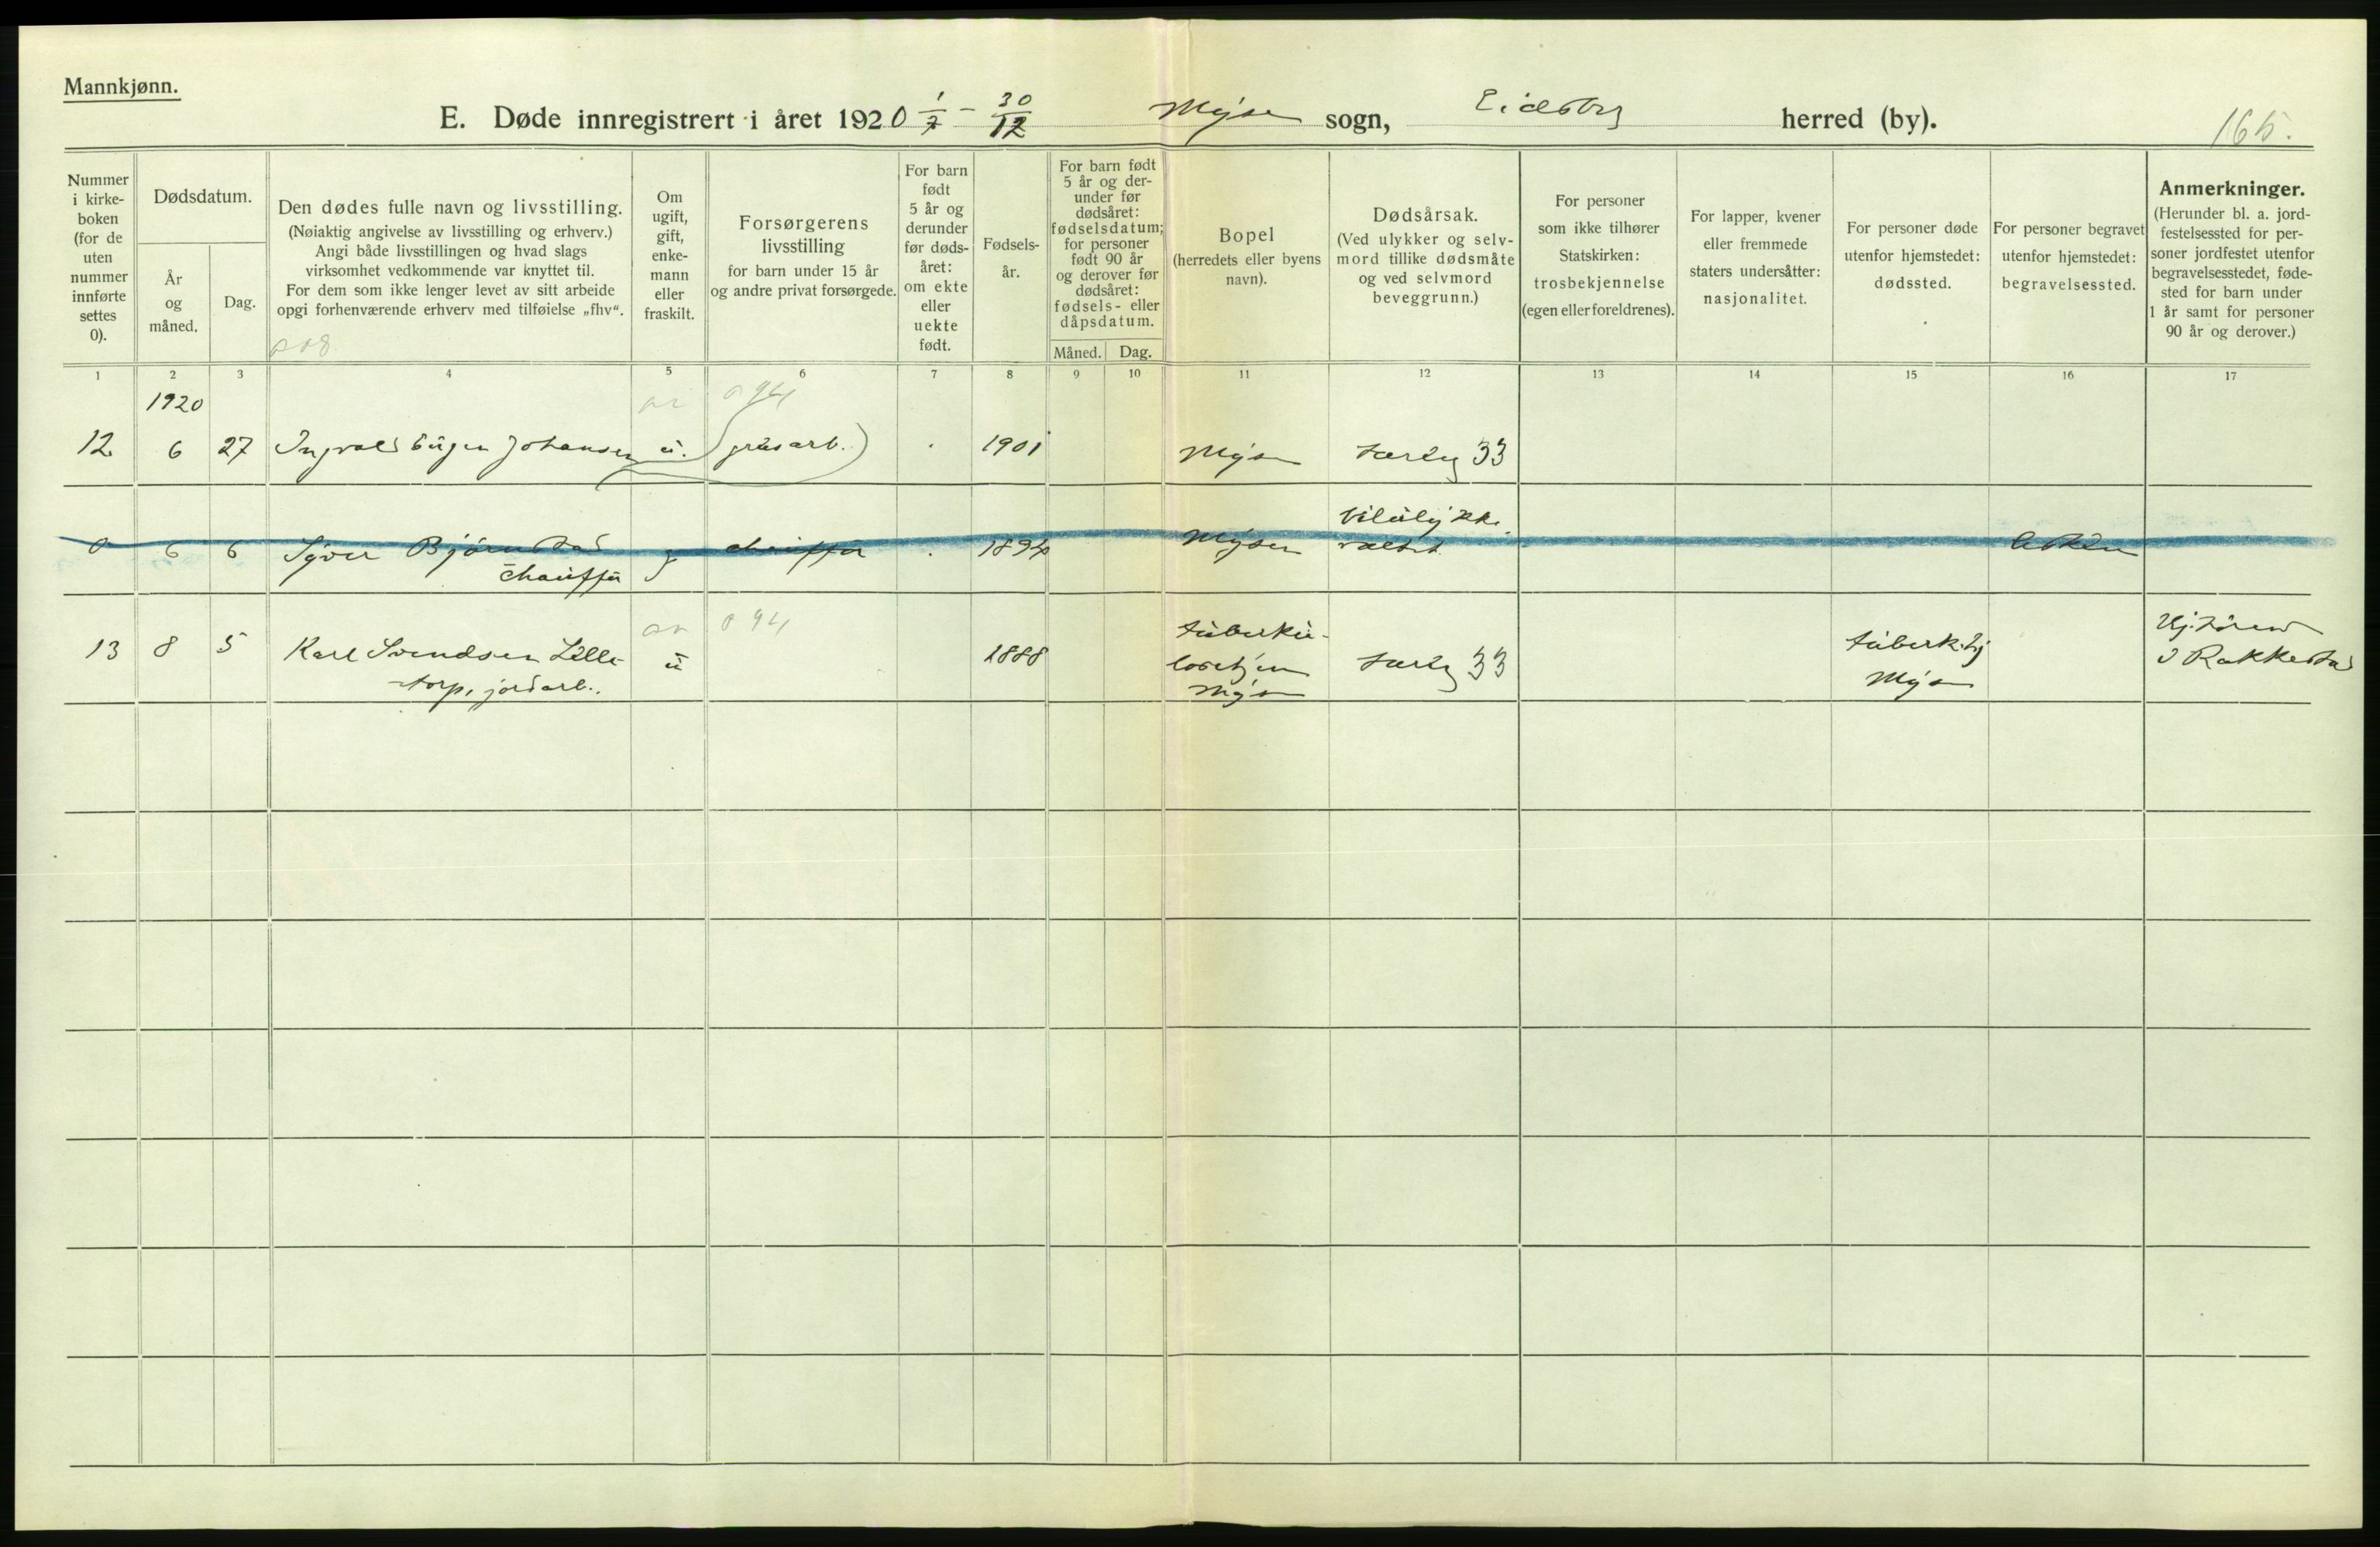 Mannkjønn.
E. Døde innregistrert i året 1920 1/7 - 30/12 Mysen sogn, Eidsberg herred (by).
165.
Nummer
i kirke-
boken
(for de
uten
nummer
innførte
settes
0).
Dødsdatum.
År
og
måned.
Dag.
Den dødes fulle navn og livsstilling.
(Nøiaktig angivelse av livsstilling og erhverv.)
Angi både livsstillingen og hvad slags
virksomhet vedkommende var knyttet til.
For dem som ikke lenger levet av sitt arbeide
opgi forhenværende erhverv med tilføielse „fhv“.
Om
ugift,
gift,
enke-
mann
eller
fraskilt.
Forsørgerens
livsstilling
for barn under 15 år
og andre privat forsørgede.
For barn
født
5 år og
derunder
før døds-
året:
om ekte
eller
uekte
født.
Fødsels-
år.
For barn født
5 år og der-
under før
dødsåret:
fødselsdatum;
for personer
født 90 år
og derover før
dødsåret:
fødsels- eller
dåpsdatum.
Måned. Dag.
Bopel
(herredets eller byens
navn).
Dødsårsak.
(Ved ulykker og selv-
mord tillike dødsmåte
og ved selvmord
beveggrunn.)
For personer
som ikke tilhører
Statskirken:
trosbekjennelse
(egen eller foreldrenes).
For lapper, kvener
eller fremmede
staters undersåtter:
nasjonalitet.
For personer døde
utenfor hjemstedet:
dødssted.
For personer begravet
utenfor hjemstedet:
begravelsessted.
Anmerkninger.
(Herunder bl. a. jord-
festelsessted for per-
soner jordfestet utenfor
begravelsesstedet, føde-
sted for barn under
1 år samt for personer
90 år og derover.)
1 2 3 4 5 6 7 8 9 10 11 12 13 14 15 16 17
1920
12. 6 27 Ingvald Eugen Johansen u. (grusarb.) 1901 Mysen 33
0 6 6 Syver Bjørnstad g chauffør 1894 Mysen Bilulykke
chauffør
13 8 5 Karl Svendsen Lille- u 1888 tuberku- 33 tuberk.hj Hj.hører
torp, jordarb. losehjem Mysen i Rakkestad
Mysen